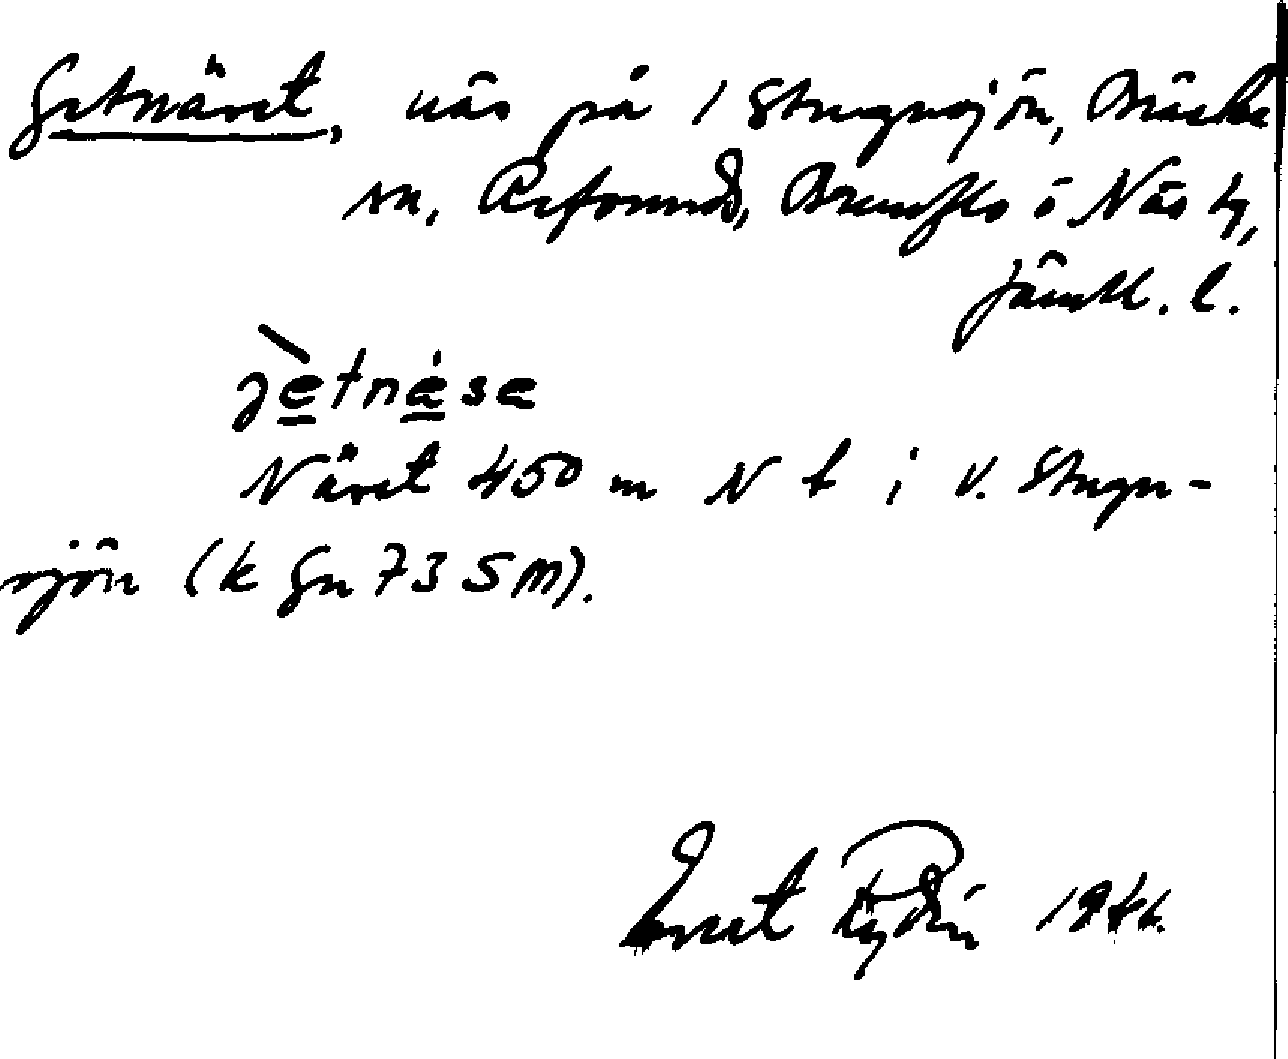 Getnäset, näs på / Stugusjön, Bräcke
sn, Refsunds, Brunflo o Näs tg,
Jämtl. l.
Näset 450 m N t i V. Stugu-
sjön (k Gn 735 M).
Knut Rydin 1946.